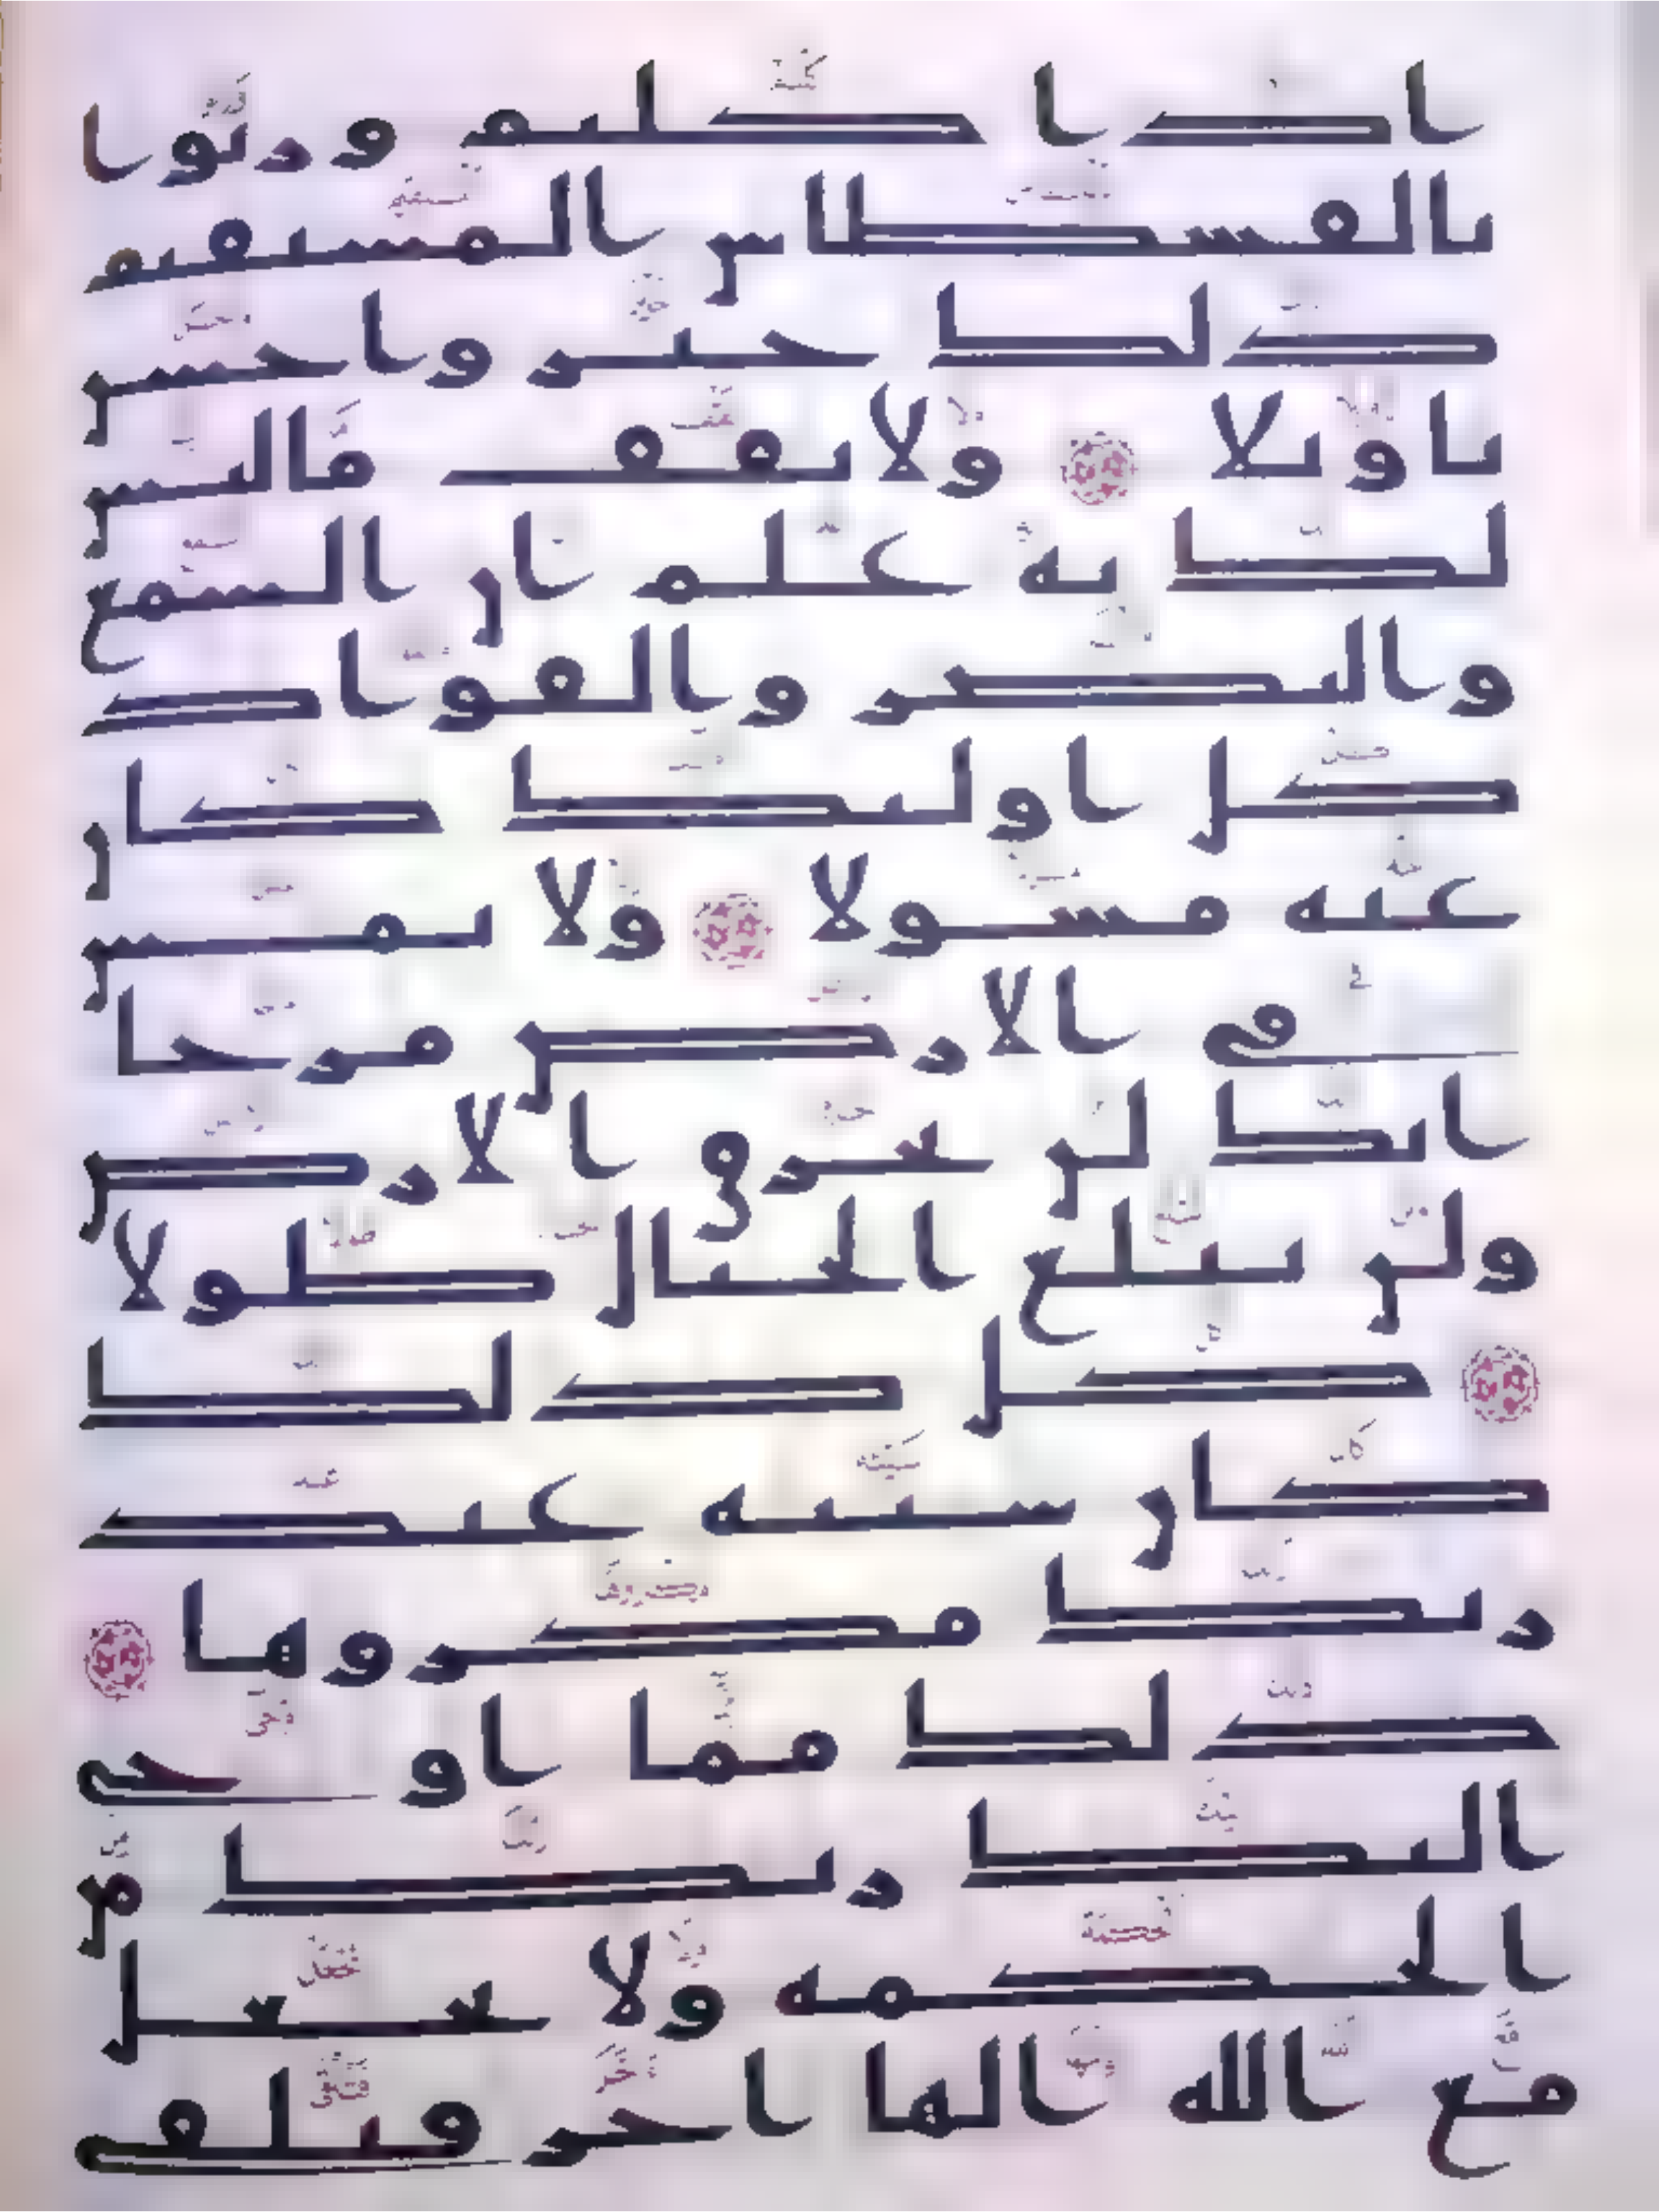 اذا كلتم وزنوا
بالقسطاس المستقيم
ذلك خير واحسن
تاويلا ولا تقف ما ليس
لك به علم ان السمع
والبصر والفواد
كل اولئك كان
عنه مسولا ولا تمش
في الارض مرحا
انك لن تخرق الارض
ولن تبلغ الجبال طولا
كل ذلك
كان سيئه عند
ربك مكروها
ذلك مما اوحى
اليك ربك من
الحكمة ولا تجعل
مع الله الها اخر فتلقى